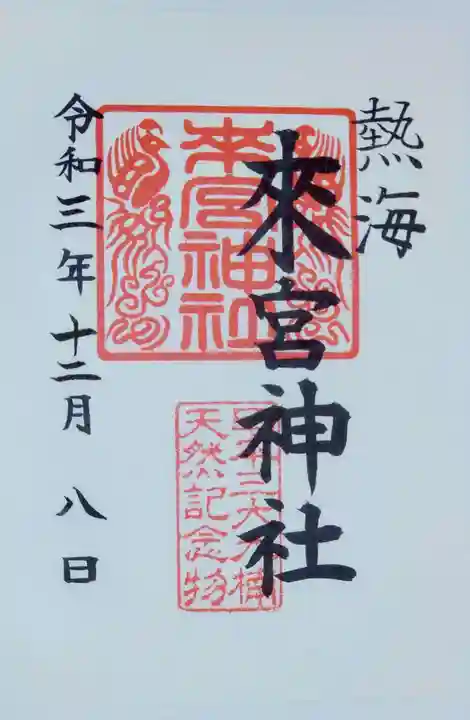 熱海
來宮神社
來宮神社
日本三大大楠
天然記念物
令和三年十二月八日